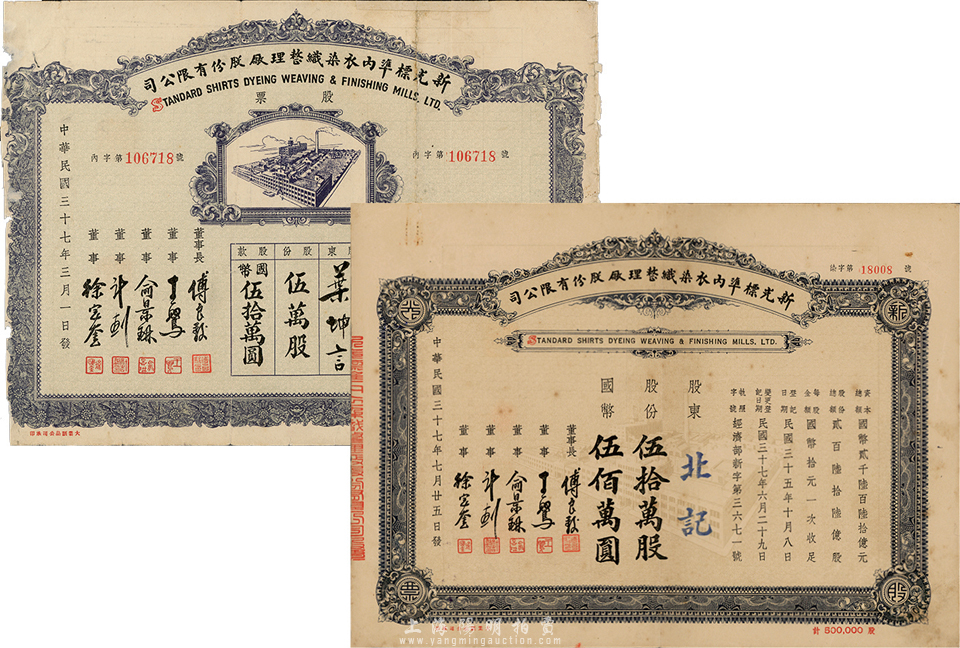 新光標準內衣染織整理廠股份有限公司
STANDARD SHIRTS DYEING WEAVING & FINISHING MILLS, LTD.
股票
內字第106718號
內字第106718號
股東 葉坤言
股份 伍萬股
股款 國幣伍拾萬圓
董事長 傅良駿
董事
董事 俞景琳
董事
董事 徐宗奎
中華民國三十七年三月一日發
新光標準內衣染織整理廠股份有限公司
STANDARD SHIRTS DYEING WEAVING & FINISHING MILLS, LTD.
字第18008號
新
光
股
票
資本總額國幣貳千陸百陸拾億元
股份總額貳百陸拾陸億股
每股金額國幣拾元一次收足
登記日期民國三十五年十月八日
變更登記日期民國三十七年六月二十九日
執照字號經濟部新字第三六七一號
股東 北記
股份 伍拾萬股
國幣 伍佰萬圓
董事長 傅良駿
董事
董事 俞景琳
董事
董事 徐宗奎
中華民國三十七年七月廿五日發
計 500,000 股
上海陽明拍賣
www.yangmingauction.com